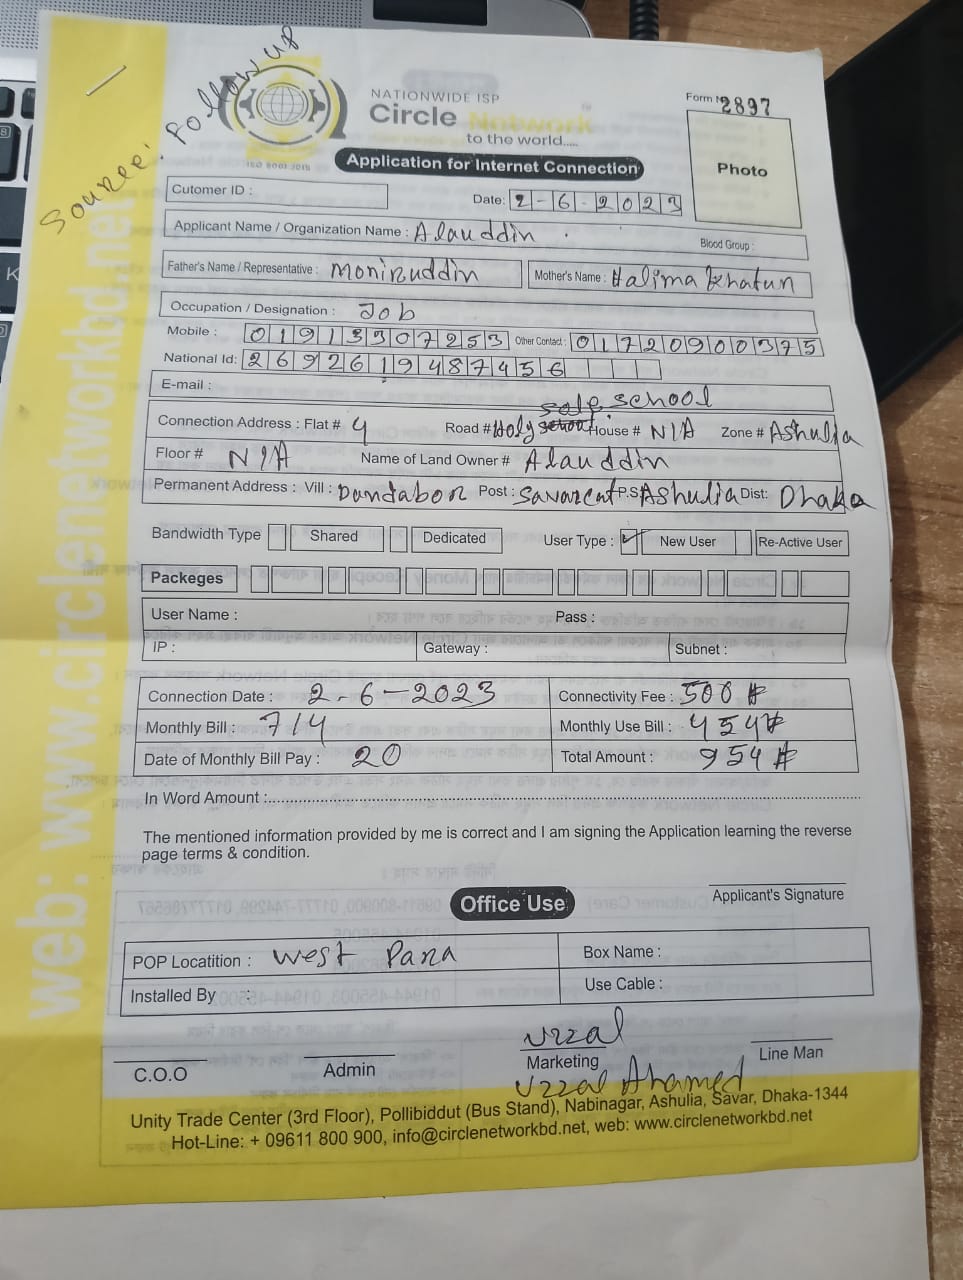 Source: Followup
NATIONWIDE ISP
Circle Network
to the world.....
ISO 9001:2015
Form N 2897
Photo
Application for Internet Connection
Cutomer ID :
Date: 2-6-2023
Applicant Name / Organization Name : Alauddin
Blood Group :
Father's Name / Representative : Monizuddin Mother's Name : Halima Khatun
Occupation / Designation : Job
Mobile : 01913307253 Other Contact : 01720900375
National Id: 2692619487456
E-mail :
school
Connection Address : Flat # 4 Road # Holy House # N/A Zone # Ashulia
Floor # N/A Name of Land Owner # Alauddin
Permanent Address : Vill : Dandabor Post : Savarcat P.S Ashulia Dist: Dhaka
Bandwidth Type Shared Dedicated User Type : ✓ New User Re-Active User
Packeges
User Name : Pass :
IP : Gateway : Subnet :
Connection Date : 2-6-2023 Connectivity Fee : 500
Monthly Bill : 714 Monthly Use Bill : 454
Date of Monthly Bill Pay : 20 Total Amount : 954
In Word Amount :
The mentioned information provided by me is correct and I am signing the Application learning the reverse
page terms & condition.
Applicant's Signature
Office Use
POP Locatition : West Para Box Name :
Installed By : Use Cable :
Uzzal
C.O.O Admin Marketing Line Man
Uzzal Ahamed
Unity Trade Center (3rd Floor), Pollibiddut (Bus Stand), Nabinagar, Ashulia, Savar, Dhaka-1344
Hot-Line: + 09611 800 900, info@circlenetworkbd.net, web: www.circlenetworkbd.net
web: www.circlenetworkbd.net